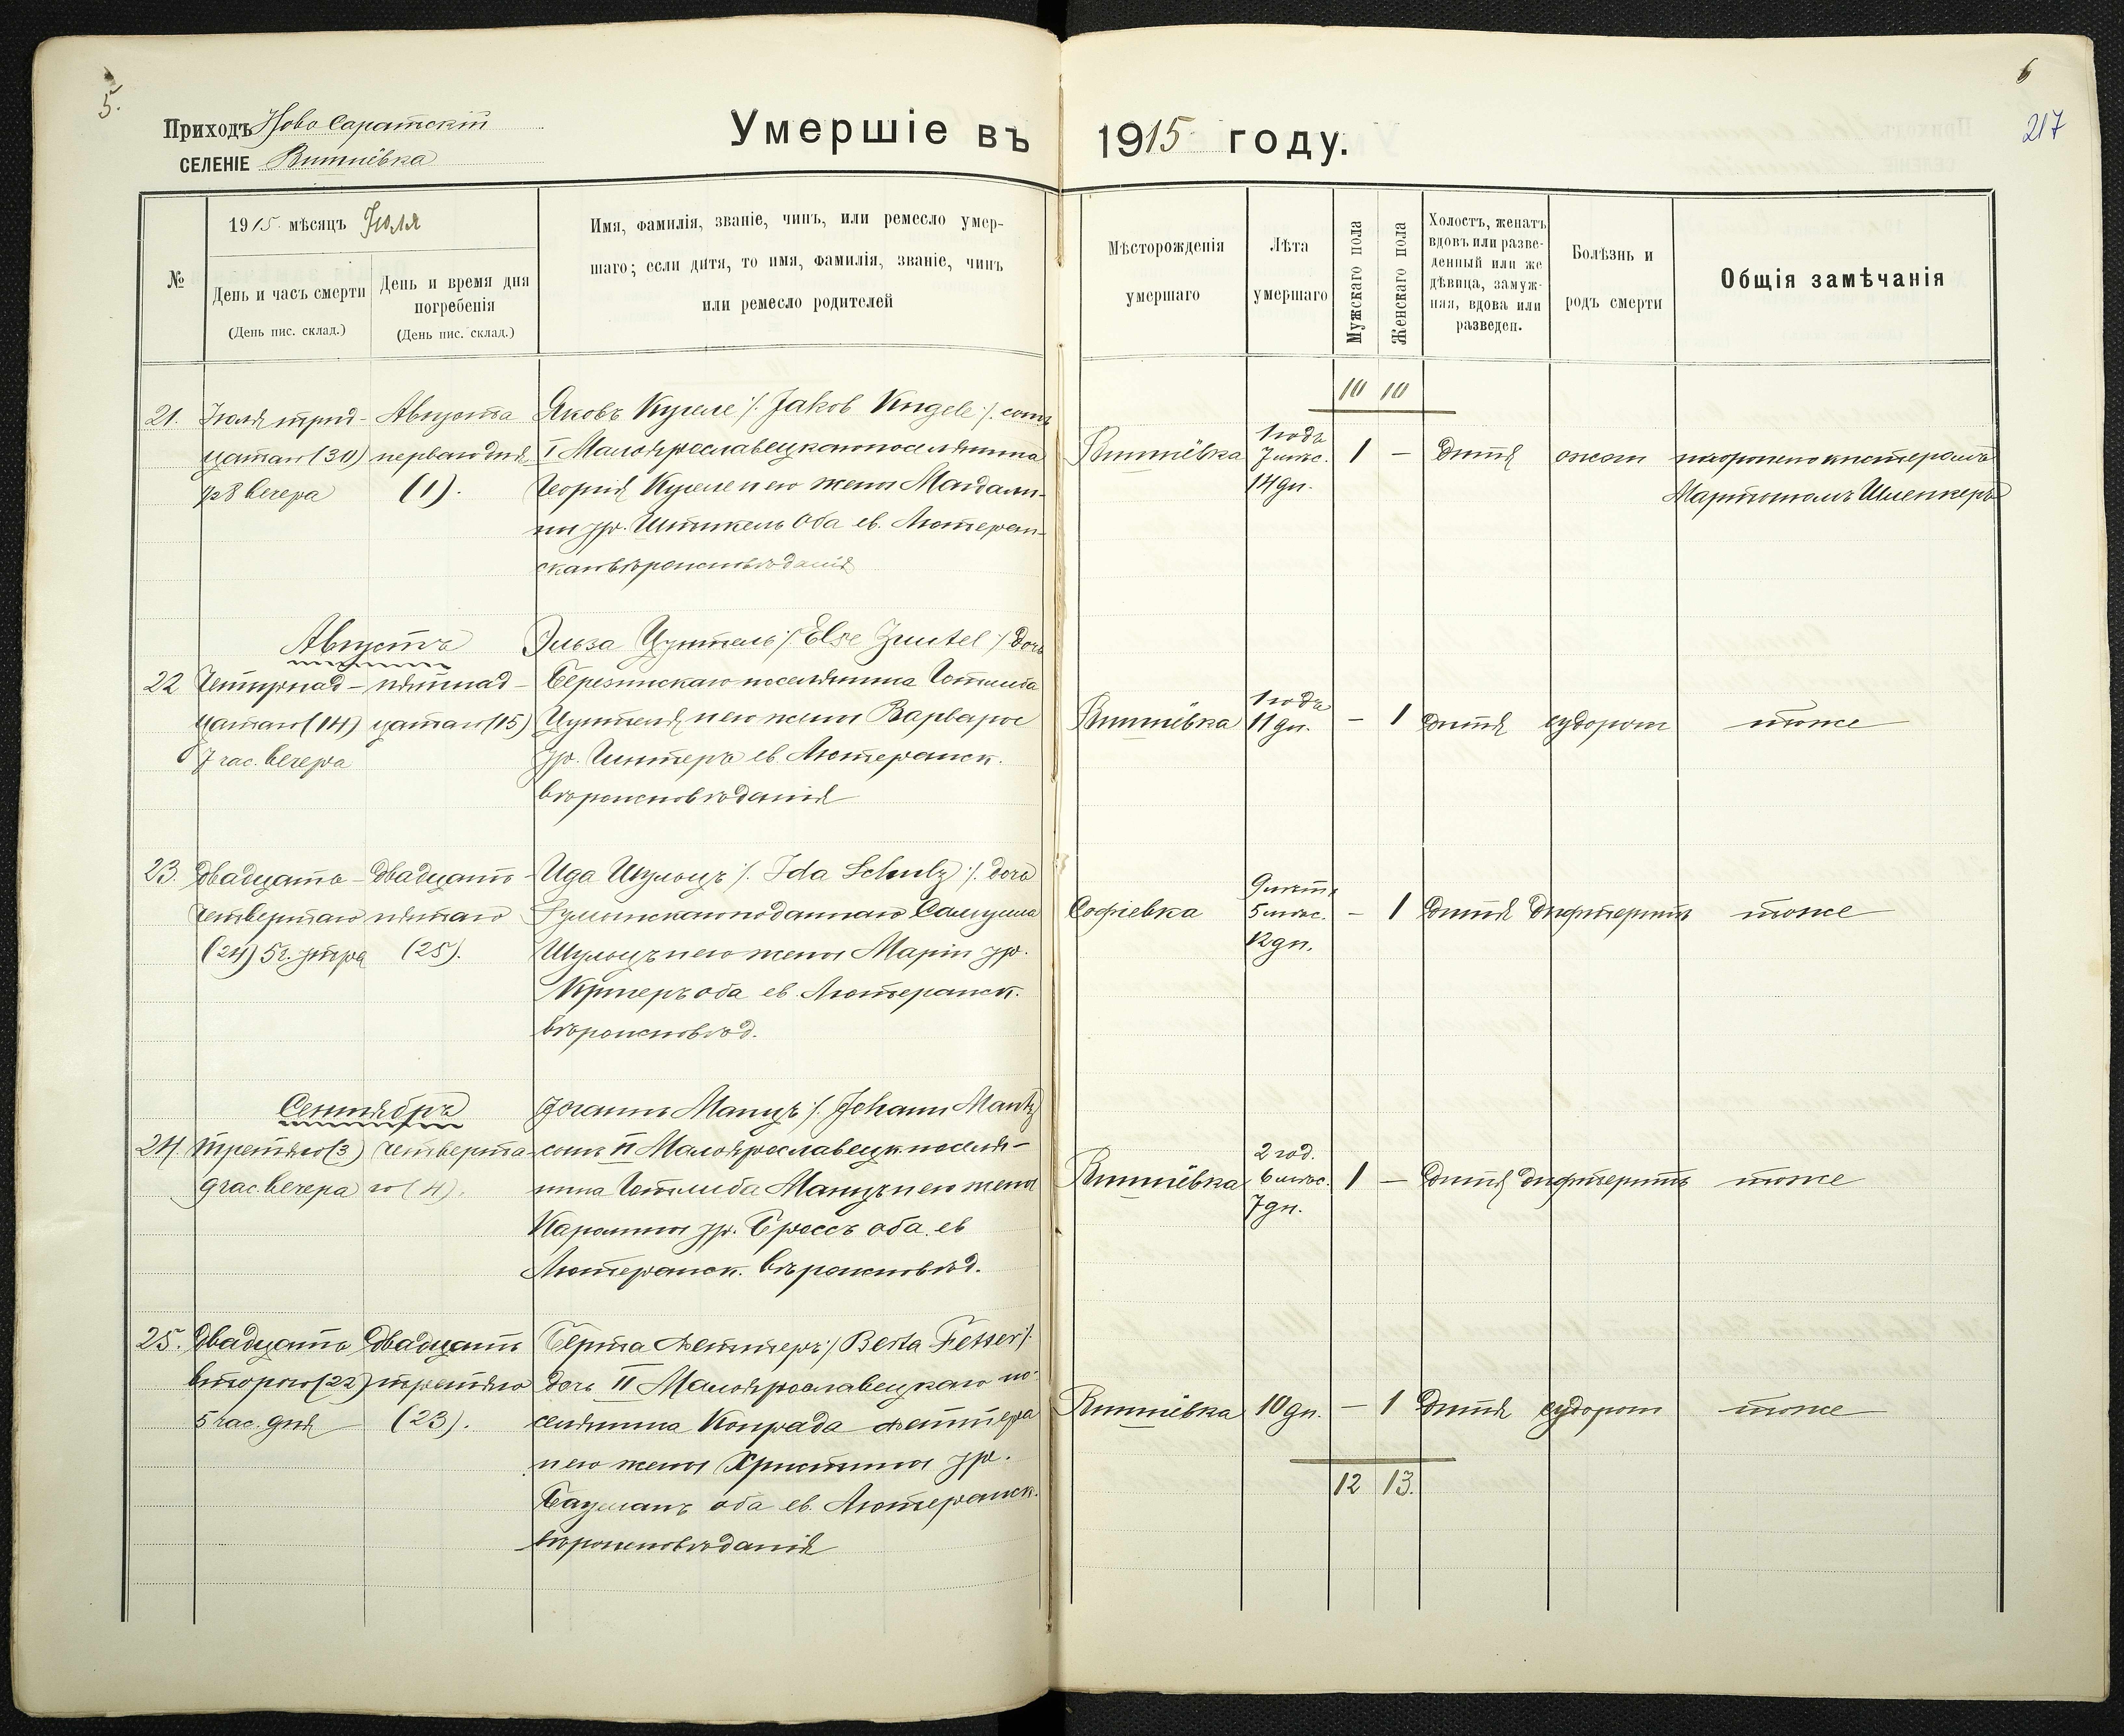 5.
Приходъ Ново Саратскій
СЕЛЕНІЕ Вишнёвка
Умершіе въ 1915 году.
6
217
№
1915 мѣсяцъ Іюля
День и часъ смерти
(День пис. склад.)
День и время дня
погребенія
(День пис. склад.)
Имя, фамилія, званіе, чинъ, или ремесло умер-
шаго; если дитя, то имя, фамилія, званіе, чинъ
или ремесло родителей
Мѣсторожденія
умершаго
Лѣта
умершаго
Мужскаго пола
Женскаго пола
Холостъ, женатъ
вдовъ или разве-
денный или же
дѣвица, замуж-
няя, вдова или
разведен.
Болѣзнь и
родъ смерти
Общія замѣчанія
10 10
21.
Іюля трид-
цатаго (30)
½8 вечера
Августа
перваго дня
(1).
Яковъ Кугеле /. Jakob Kugele ./. сынъ
I Малоярославецкаго поселянина
Георгія Кугеле и его жены Магдали-
ны ур. Штикель оба ев. Лютеран-
скаго вѣроисповѣданія
Вишнёвка
1 годъ
7 мѣс.
14 дн.
1 —
дитя
ожог
похоронено кистеромъ
Мартыномъ Шленкеръ
Августъ
22
Четырнад-
цатаго (14)
7 час. вечера
пятнад-
цатаго (15)
Эльза Цуттель /. Else Zuttel ./ дочь
Березинскаго поселянина Готлиба
Цуттеля и его жены Варвары
ур. Гинтеръ ев. Лютеранск.
вѣроисповѣданія
Вишнёвка
1 годъ
11 дн.
— 1
дитя
судорог
тоже
23.
двадцать
четвертаго
(24) 5 ч. утра
двадцать
пятаго
(25).
Ида Шульцъ /. Ida Schulz ./. дочь
Румынскаго подданнаго Самуила
Шульцъ и его жены Маріи ур.
оба ев. Лютеранск.
вѣроисповѣд.
Софіевка
9 лѣтъ
5 мѣс.
12 дн.
— 1
дитя
дифтеритъ
тоже
Сентябрь
24.
третьяго (3)
9 час. вечера
четверта-
го (4).
Іоганъ Манцъ /. Johann Mantz
сынъ II Малоярославецк. поселя-
нина Готлиба Манцъ и его жены
Каролины ур. Броссъ оба ев.
Лютеранск. вѣроисповѣд.
Вишнёвка
2 год.
6 мѣс.
7 дн.
1 —
дитя
дифтеритъ
тоже
25.
двадцать
второго (22)
5 час. дня
двадцать
третьяго
(23).
Берта Феттеръ ./ Berta Fetter /.
дочь II Малоярославецкаго по-
селянина Конрада Феттера
и его жены Христины ур.
Бауманъ оба ев. Лютеранск.
вѣроисповѣданія
Вишнёвка
10 дн.
— 1
дитя
судорог
тоже
12 13.